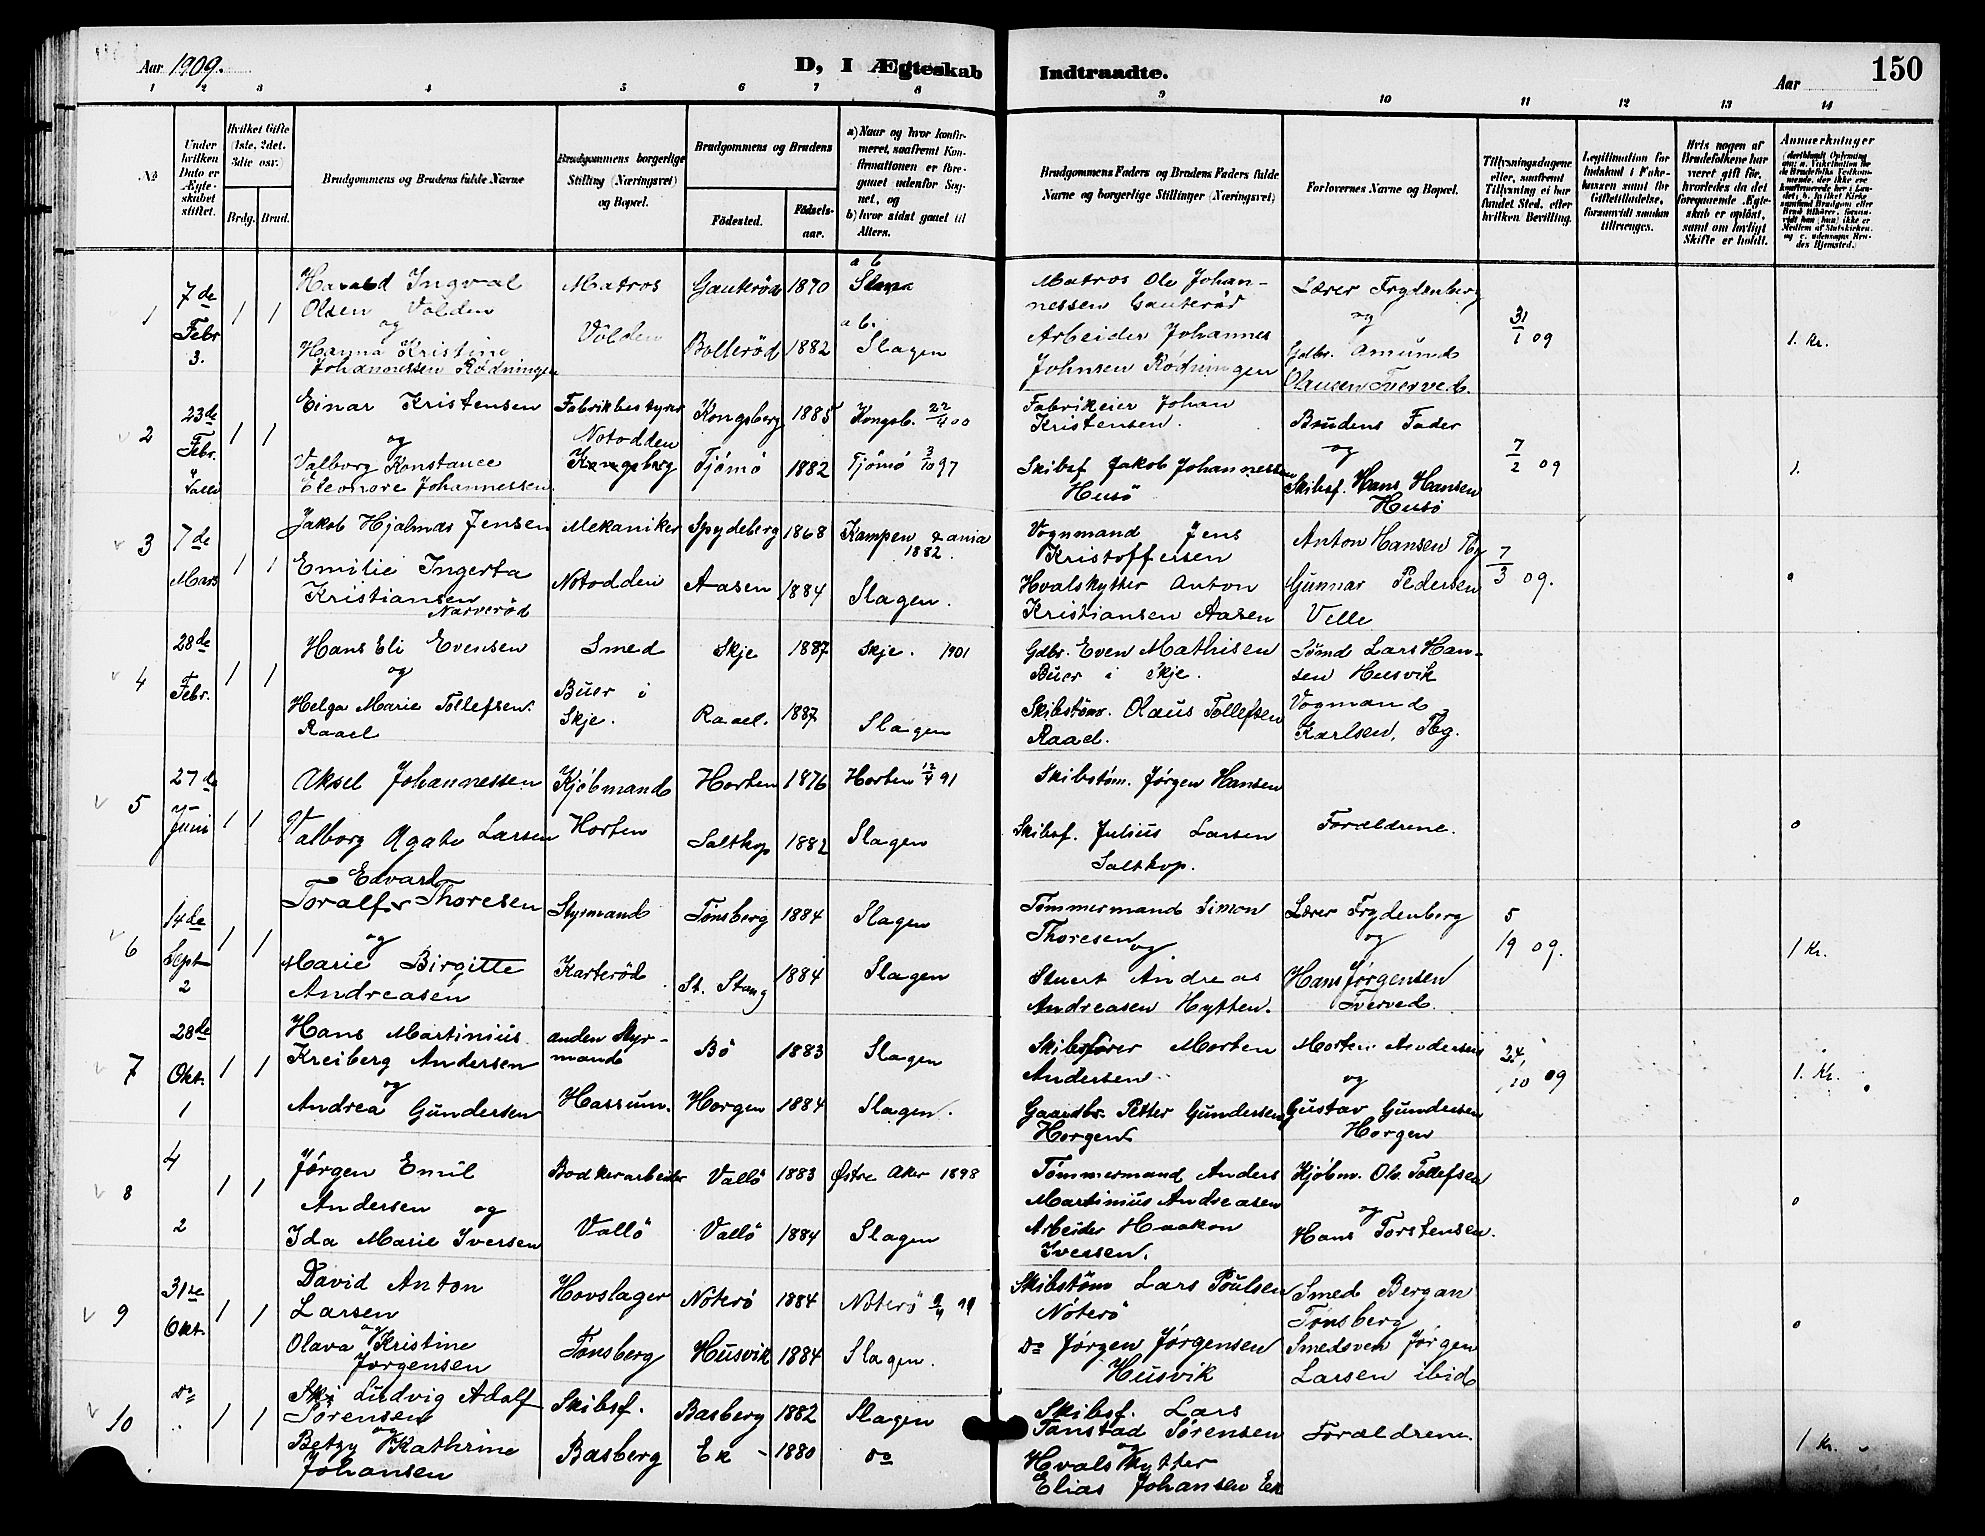 Aar 1909.
D, I Ægteskab Indtraadte.
Aar
150
1 2 3 4 5 6 7 8 9 10 11 12 13 14
No
Under hvilken Dato er Ægteskabet stiftet.
Hvilket Gifte (1ste, 2det, 3die osv.)
Brdg. Brud.
Brudgommens og Brudens fulde Navne
Brudgommens borgerlige Stilling (Næringsvei) og Bopæl.
Brudgommens og Brudens
Fødested. Fødselsaar.
a) Naar og hvor konfirmeret, saafremt Konfirmationen er foregaaet udenfor Sognet, og
b) hvor sidst gaaet til Alters.
Brudgommens Faders og Brudens Faders fulde Navne og borgerlige Stillinger (Næringsvei)
Forlovernes Navne og Bopæl.
Tillysningsdagene eller, saafremt Tillysning ei har fundet Sted, efter hvilken Bevilling.
Legitimation for Indskud i Enkekassen samt for Giftetilladelse, forsaavidt saadan tiltrænges.
Hvis nogen af Brudefolkene har været gift før, hvorledes da det foregaaende Ægteskab er opløst, samt om lovligt Skifte er holdt.
Anmærkninger
1
7de Febr 3.
1 1
Harald Ingval
Olsen Volden
og
Hanna Kristine
Johannessen Rødningen
Matros
Volden
Gauterød 1870
Bollerød 1882
a b
a b.
Slagen
Matros Ole Johan-
nessen Gauterød
Arbeider Johannes
Johnsen Rødningen
Lærer Frydenberg
og
Gdbr. Amund
Olausen Tverved.
31/1 09
1. Kr.
2
23de Febr.
1 1
Einar Kristensen
og
Valborg Konstance
Eleonore Johannessen
Fabrikbestyrer
Notodden
Kongsberg
Kongsberg 1885
Tjömö 1882
Kongsb. 22/4 00
Tjömö 3/10 97
Fabrikeier Johan
Kristensen.
Skibsf. Jakob Johannessen
Husö
Brudens Fader
og
Skibsf. Hans Hansen
Husö
7/2 09
1.
3
7de Mars
1 1
Jakob Hjalmar Jensen
Emilie Ingerta
Kristiansen
Narverød
Mekaniker
Notodden
Spydeberg 1868
Aasen 1884
Kampen
1882.
Slagen.
Vognmand Jens
Kristoffersen
Hvalskytter Anton
Kristiansen Aasen
Anton Hansen Tbg
Gunnar Pedersen
Velle
7/3 09.
0
4
28de Febr.
1 1
Hans Eli Evensen
og
Helga Marie Tollefsen.
Raael
Smed
Buer i
Skje.
Skje 1887
Raael. 1887
Skje. 1901
Slagen
Gdbr. Even Mathisen
Buer i Skje.
Skibstöm. Olaus Tollefsen
Raael.
Sømd Lars Han-
sen Husvik
Vogmand
Karlsen, Tbg.
5
27de Juni
1 1
Aksel Johannessen
Valborg Agate Larsen
Kjöbmand
Horten
Horten 1876
Saltkop 1882
Horten 12/4 91
Slagen
Skibstöm. Jörgen Hansen
Skibsf. Julius Larsen
Saltkop.
Forældrene.
0
6
14de Sept 2
1 1
Edvart
Toralf Thoresen
og
Marie Birgitte
Andreasen
Styrmand
Karterød
Tønsberg 1884
St. Stang 1884
Slagen
Slagen
Tømmermand Simon
Thoresen
og
Stuert Andreas
Andreasen Hytten.
Lærer Frydenberg
og
Hans Jörgensen
Tverved.
5
19 09.
1 Kr.
7
28de Okt. 1
1 1
Hans Martinius
Kreiberg Andersen
og
Andrea Gundersen
anden Styr-
mand
Hassum.
Bö 1883
Horgen 1884
Slagen
Slagen.
Skibsfører Morten
Andersen.
Gaardbr. Petter Gundersen
Horgen
Morten Andersen
og
Gustav Gundersen
Horgen
24/10 09
1. Kr.
8
4
2
1 1
Jörgen Emil
Andersen og
Ida Marie Iversen
Bödkerarbeider
Vallö
Vallö 1883
Vallö 1884
Østre Aker 1898
Slagen
Tömmermand Anders
Martinius Andreasen
Arbeider Haakon
Iversen.
Kjöbm. Ole Tollefsen
og
Hans Torstensen.
0
9
31te Okt.
1 1
David Anton
Larsen
og
Olava Kristine
Jørgensen
Hovslager
Tønsberg
Nöterö 1884
Husvik 1884
Nöterö
Slagen.
Skibstöm Lars Poulsen
Nöterö
Do Jørgen Jørgensen
Husvik
Smed Bergan
Tønsberg
Smedsven Jørgen
Larsen ibid
0
10
Do
1 1
Ludvig Adolf
Sørensen
og
Betzy Kathrine
Johansen
Skibsf.
Basberg
Basberg 1882
Ek 1880
Slagen
Do
Skibsf. Lars
Tanstad Sørensen
og
Hvalskytter
Elias Johansen Ek
Forældrene.
1 Kr.